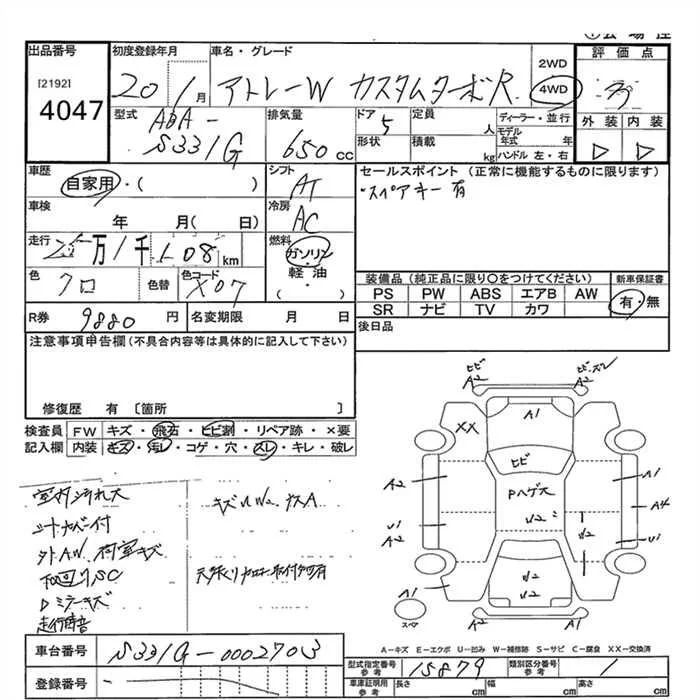 出品番号 初度登録年月 車名・グレード 2WD 評価点
[2192] 4047
20 1月 アトレーW カスタムターボR. 4WD
型式 排気量 ドア 定員 人 ディーラー・並行 外装 内装
ABA-S331G 650cc 5 モデル年式 年 D D
形状 積載 kg ハンドル 左・右
車歴 シフト セールスポイント (正常に機能するものに限ります)
自家用・( ) AT ・スペアキー有
車検 年 月( 日) 冷房 AC
走行 万1千 08km 燃料 ガソリン・軽油・( )
色 クロ 色替 色コード X07
装備品 (純正品に限り〇をつけてください) 新車保証書
PS PW ABS エアB AW 有・無
SR ナビ TV カワ
R券 9880円 名変期限 月 日 後日品
注意事項申告欄 (不具合内容等は具体的に記入して下さい)
修復歴 有 〔箇所 〕
検査員 FW キズ・飛石・ヒビ割・リペア跡・×要
記入欄 内装 キズ・汚レ・コゲ・穴・スレ・キレ・破レ
ヒビ A2
ヒビ・スレ A2
A1
XX
ヒビ
A2 Pハゲ大 A1
A4
U1 A2 U2 U2 U1
A1 U2 U2 A1
スペア
A1 A1
室内汚れ大 キズUW2 ナスA
シートカバー付
外AW 荷室キズ
下回りSC
Dミラーキズ
走行時音
A-キズ E-エクボ U-凹み W-補修跡 S-サビ C-腐食 XX-交換済
車台番号 S331G-0002703
型式指定番号 参考 15879 類別区分番号 参考 1
登録番号 車庫証明用 参考 長さ cm 幅 cm 高さ cm